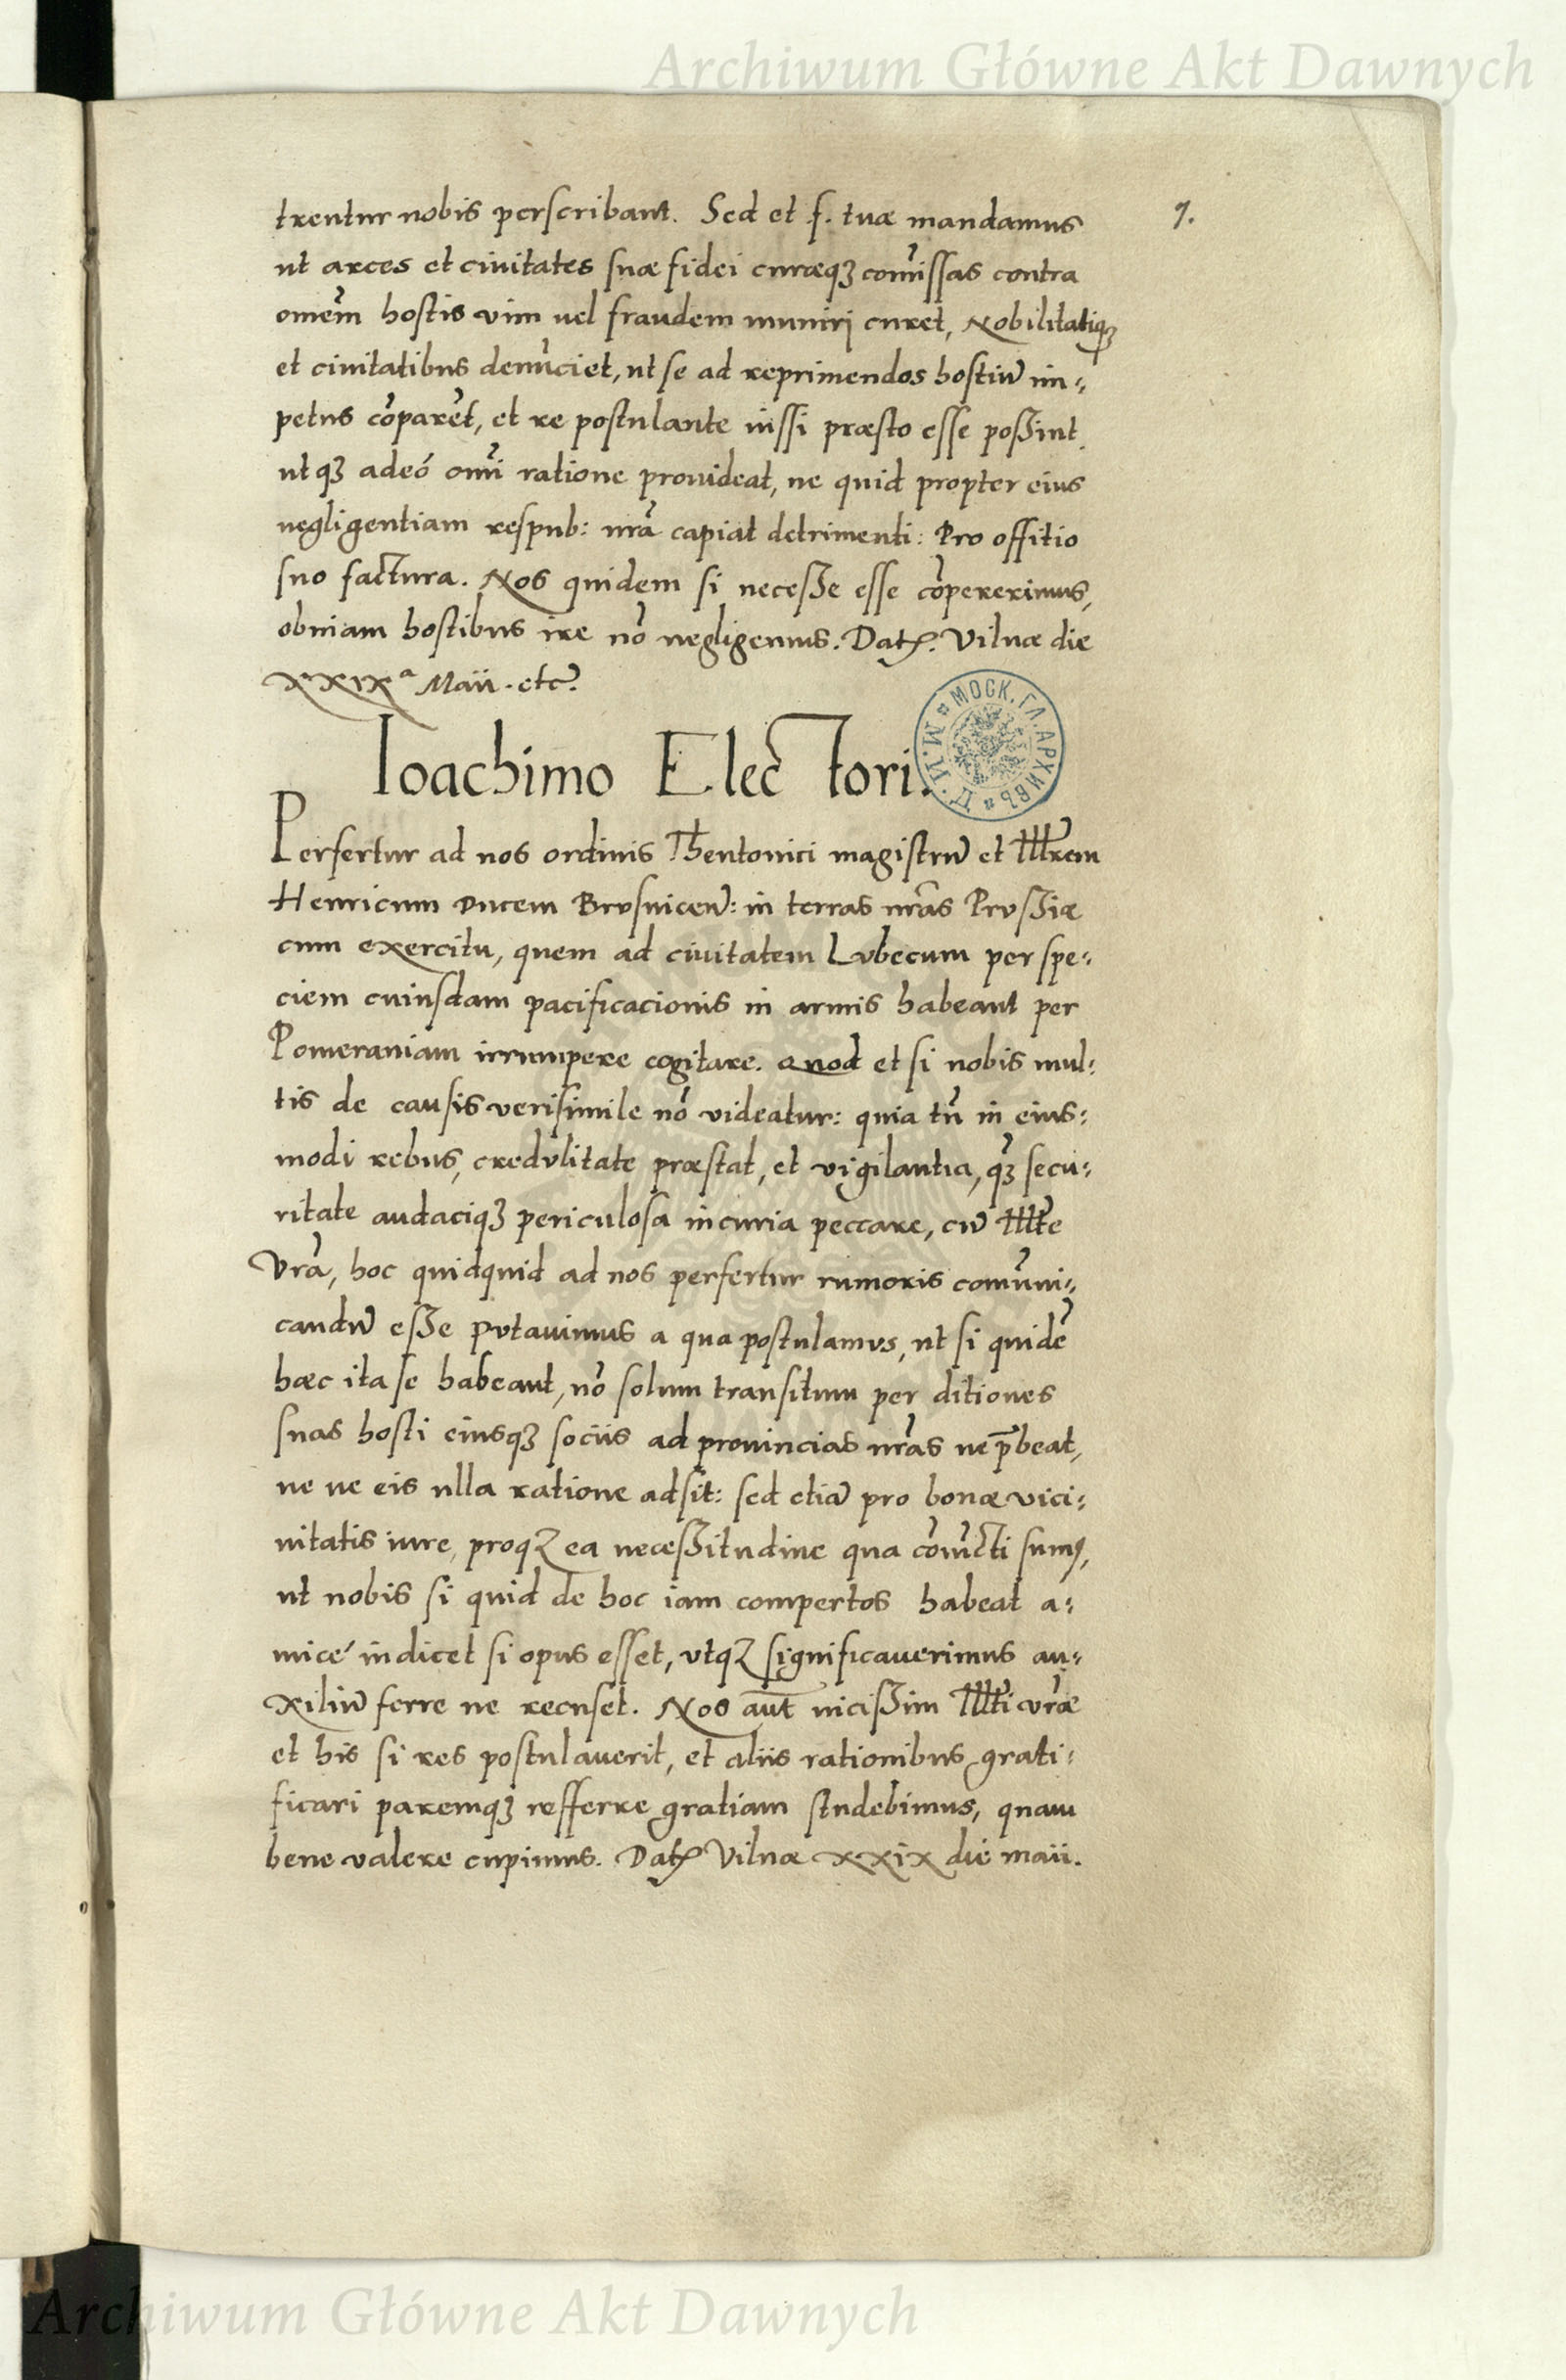 Archiwum Główne Akt Dawnych
7.
trentur nobis perscribant. Sed et f. tuæ mandamus
ut arces et ciuitates suæ fidei curæqꝫ com̃issas contra
omem̃ hostis vim uel fraudem muniri curet, Nobilitatiqꝫ
et ciuitatibus denũciet, ut se ad reprimendos hostiũ im⸗
petus cõparẽt, et re postulante iussi præsto esse poßint
utqꝫ adeó om̃i ratione prouideat, ne quid propter eius
negligentiam respub: nr̃a capiat detrimenti: Pro offitio
suo factura. Nos quidem si neceße esse cõpererimus,
obuiam hostibus ire nõ negligemus. Datꝭ. Vilnæ die
XXIXª Maii. etc̃.
Ioachimo Elec tori.
МОСК. ГЛ. АРХИВЪ М. И. Д.
Perfertur ad nos ordinis Theutonici magistrũ et Illr̃em
Henricum Ducem Brusuiceñ: in terras nr̃as Prußiæ
cum exercitu, quem ad ciuitatem Lubecum per spe⸗
ciem cuiusdam pacificacionis in armis habeant per
Pomeraniam irrumpere cogitare. Quod et si nobis mul⸗
tis de causis verisimile nõ videatur: quia tñ in eius⸗
modi rebus, credulitate præstat, et vigilantia, qꝫ̃ secu⸗
ritate audaciqꝫ periculosa incuria peccare, cũ Illt̃e
Vr̃a, hoc quidquid ad nos perfertur rumoris com̃uni⸗
candũ eße putauimus a qua postulamus, ut si quidẽ
hæc ita se habeant, nõ solum transitum per ditiones
suas hosti eiusqꝫ sociis ad prouincias nr̃as ne p̃beat,
ne ue eis ulla ratione adsit: sed etiã pro bonæ vici⸗
nitatis iure, proqꝫ ea neceßitudine qua cõiũcti sumꝰ,
ut nobis si quid de hoc iam compertos habeat a⸗
micé indicet si opus esset, utqꝫ significauerimus au⸗
xiliũ ferre ne recuset. Nos aut̃ uicißim Illt̃i vr̃æ
et his si res postulauerit, et aliis rationibus grati⸗
ficari paremqꝫ refferre gratiam studebimus, quam
bene valere cupimus. Datꝭ Vilnæ XXIX die maii.
Archiwum Główne Akt Dawnych